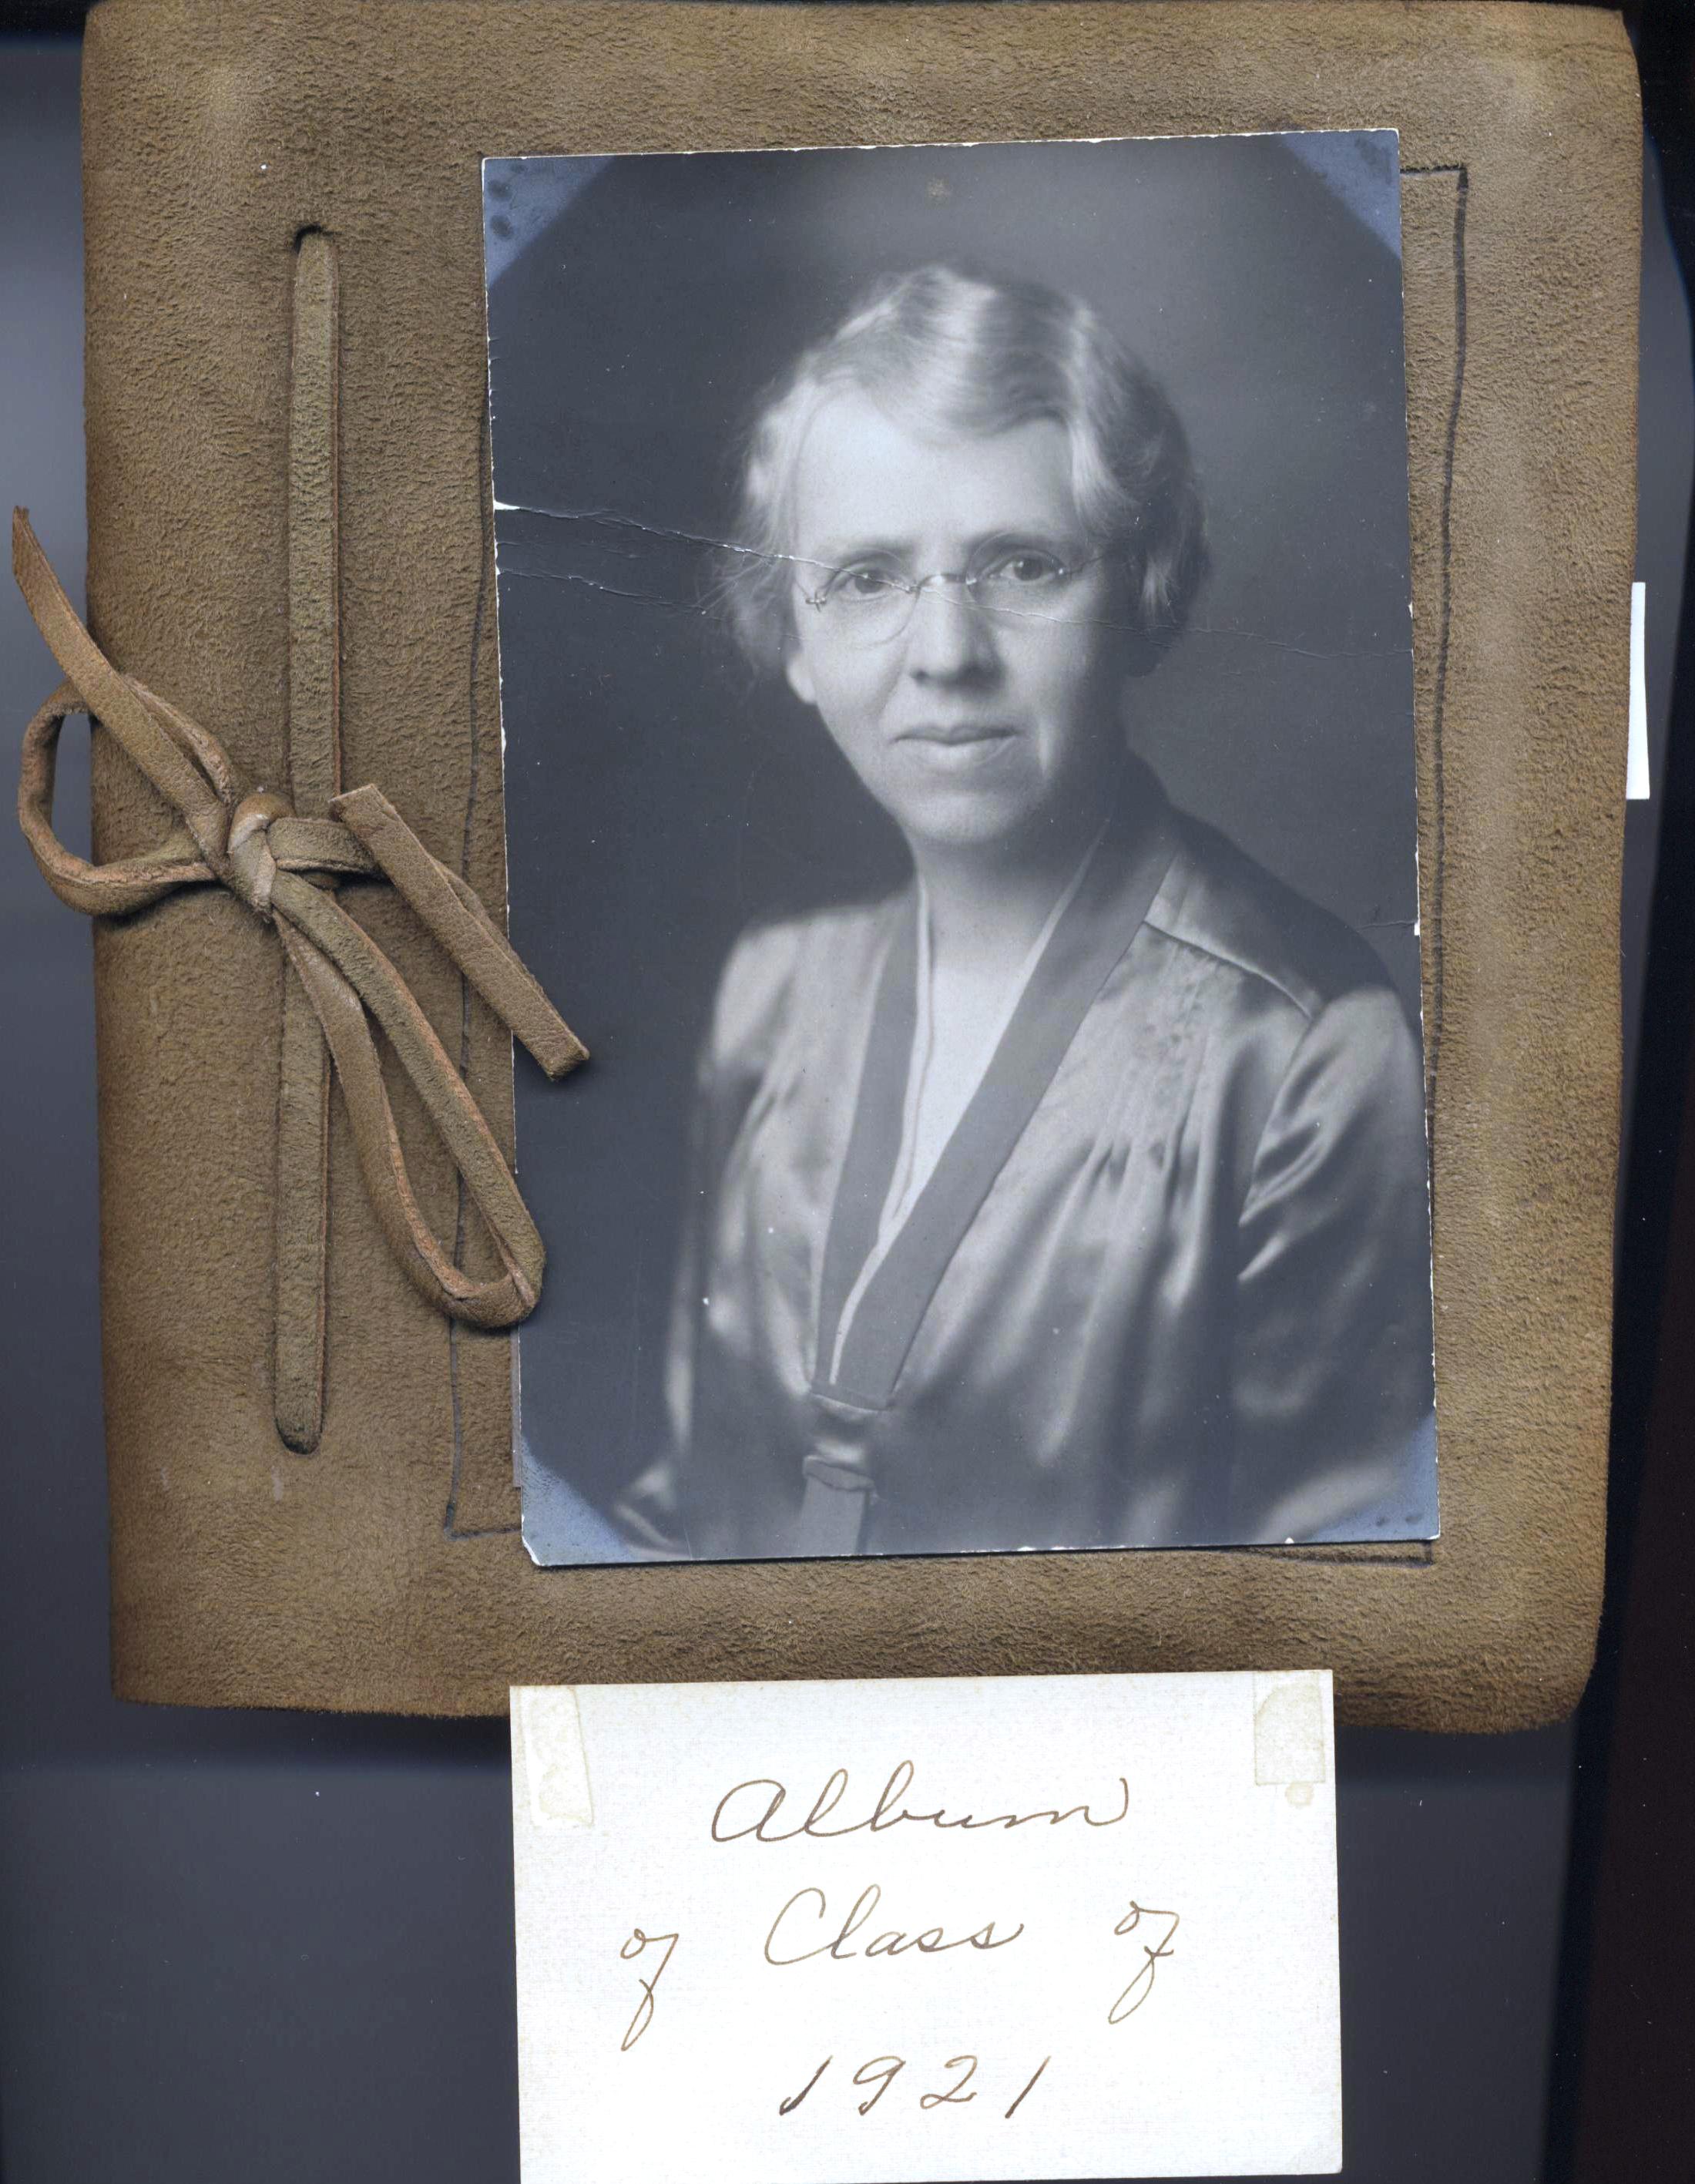 Album
of Class of
1921